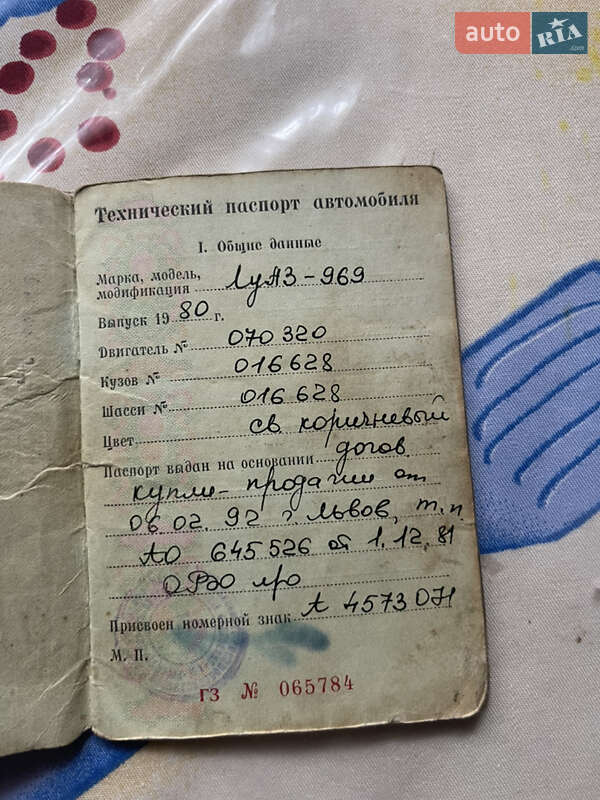 auto RIA .com
Технический паспорт автомобиля
I. Общие данные
Марка, модель, модификация ЛуАЗ-969
Выпуск 1980 г.
Двигатель № 070320
Кузов № 016628
Шасси № 016628
Цвет св коричневый
Паспорт выдан на основании догов.
купли-продажи от
06.02.92 г. Львов, т.п.
АО 645526 от 1.12.81
ОРЭО
Присвоен номерной знак А 4573
М. П.
ГЗ № 065784